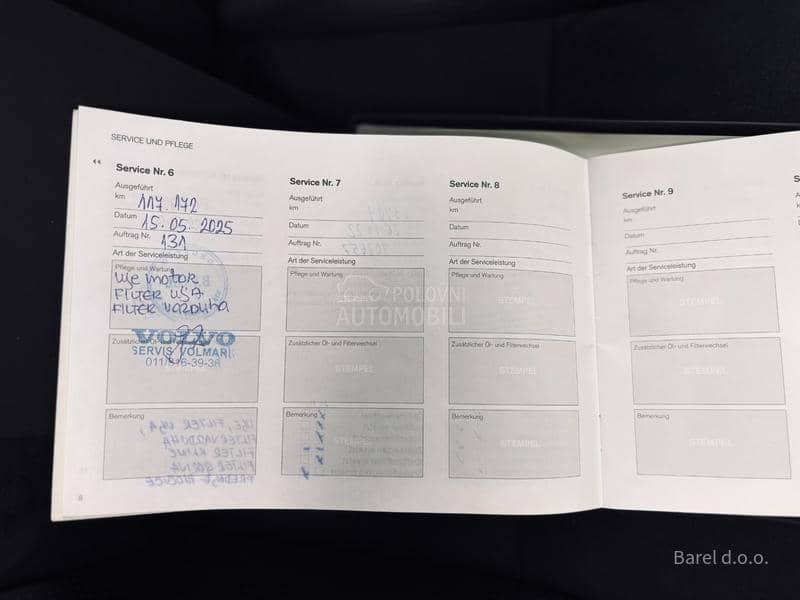 SERVICE UND PFLEGE
Service Nr. 6
Ausgeführt
km 117.172
Datum 15.05.2025
Auftrag Nr. 131
Art der Serviceleistung
Pflege und Wartung
ulje motor
FILTER ULJA
FILTER VAZDUHA
Zusätzlicher Öl- und Filterwechsel
VOLVO
SERVIS VOLMARK
011/316-39-36
Bemerkung
8
Service Nr. 7
Ausgeführt
km
Datum
Auftrag Nr.
Art der Serviceleistung
Pflege und Wartung
POLOVNI
AUTOMOBILI
Zusätzlicher Öl- und Filterwechsel
STEMPEL
Bemerkung
Service Nr. 8
Ausgeführt
km
Datum
Auftrag Nr.
Art der Serviceleistung
Pflege und Wartung
STEMPEL
Zusätzlicher Öl- und Filterwechsel
STEMPEL
Bemerkung
STEMPEL
Service Nr. 9
Ausgeführt
km
Datum
Auftrag Nr.
Art der Serviceleistung
Pflege und Wartung
STEMPEL
Zusätzlicher Öl- und Filterwechsel
STEMPEL
Bemerkung
STEMPEL
Barel d.o.o.